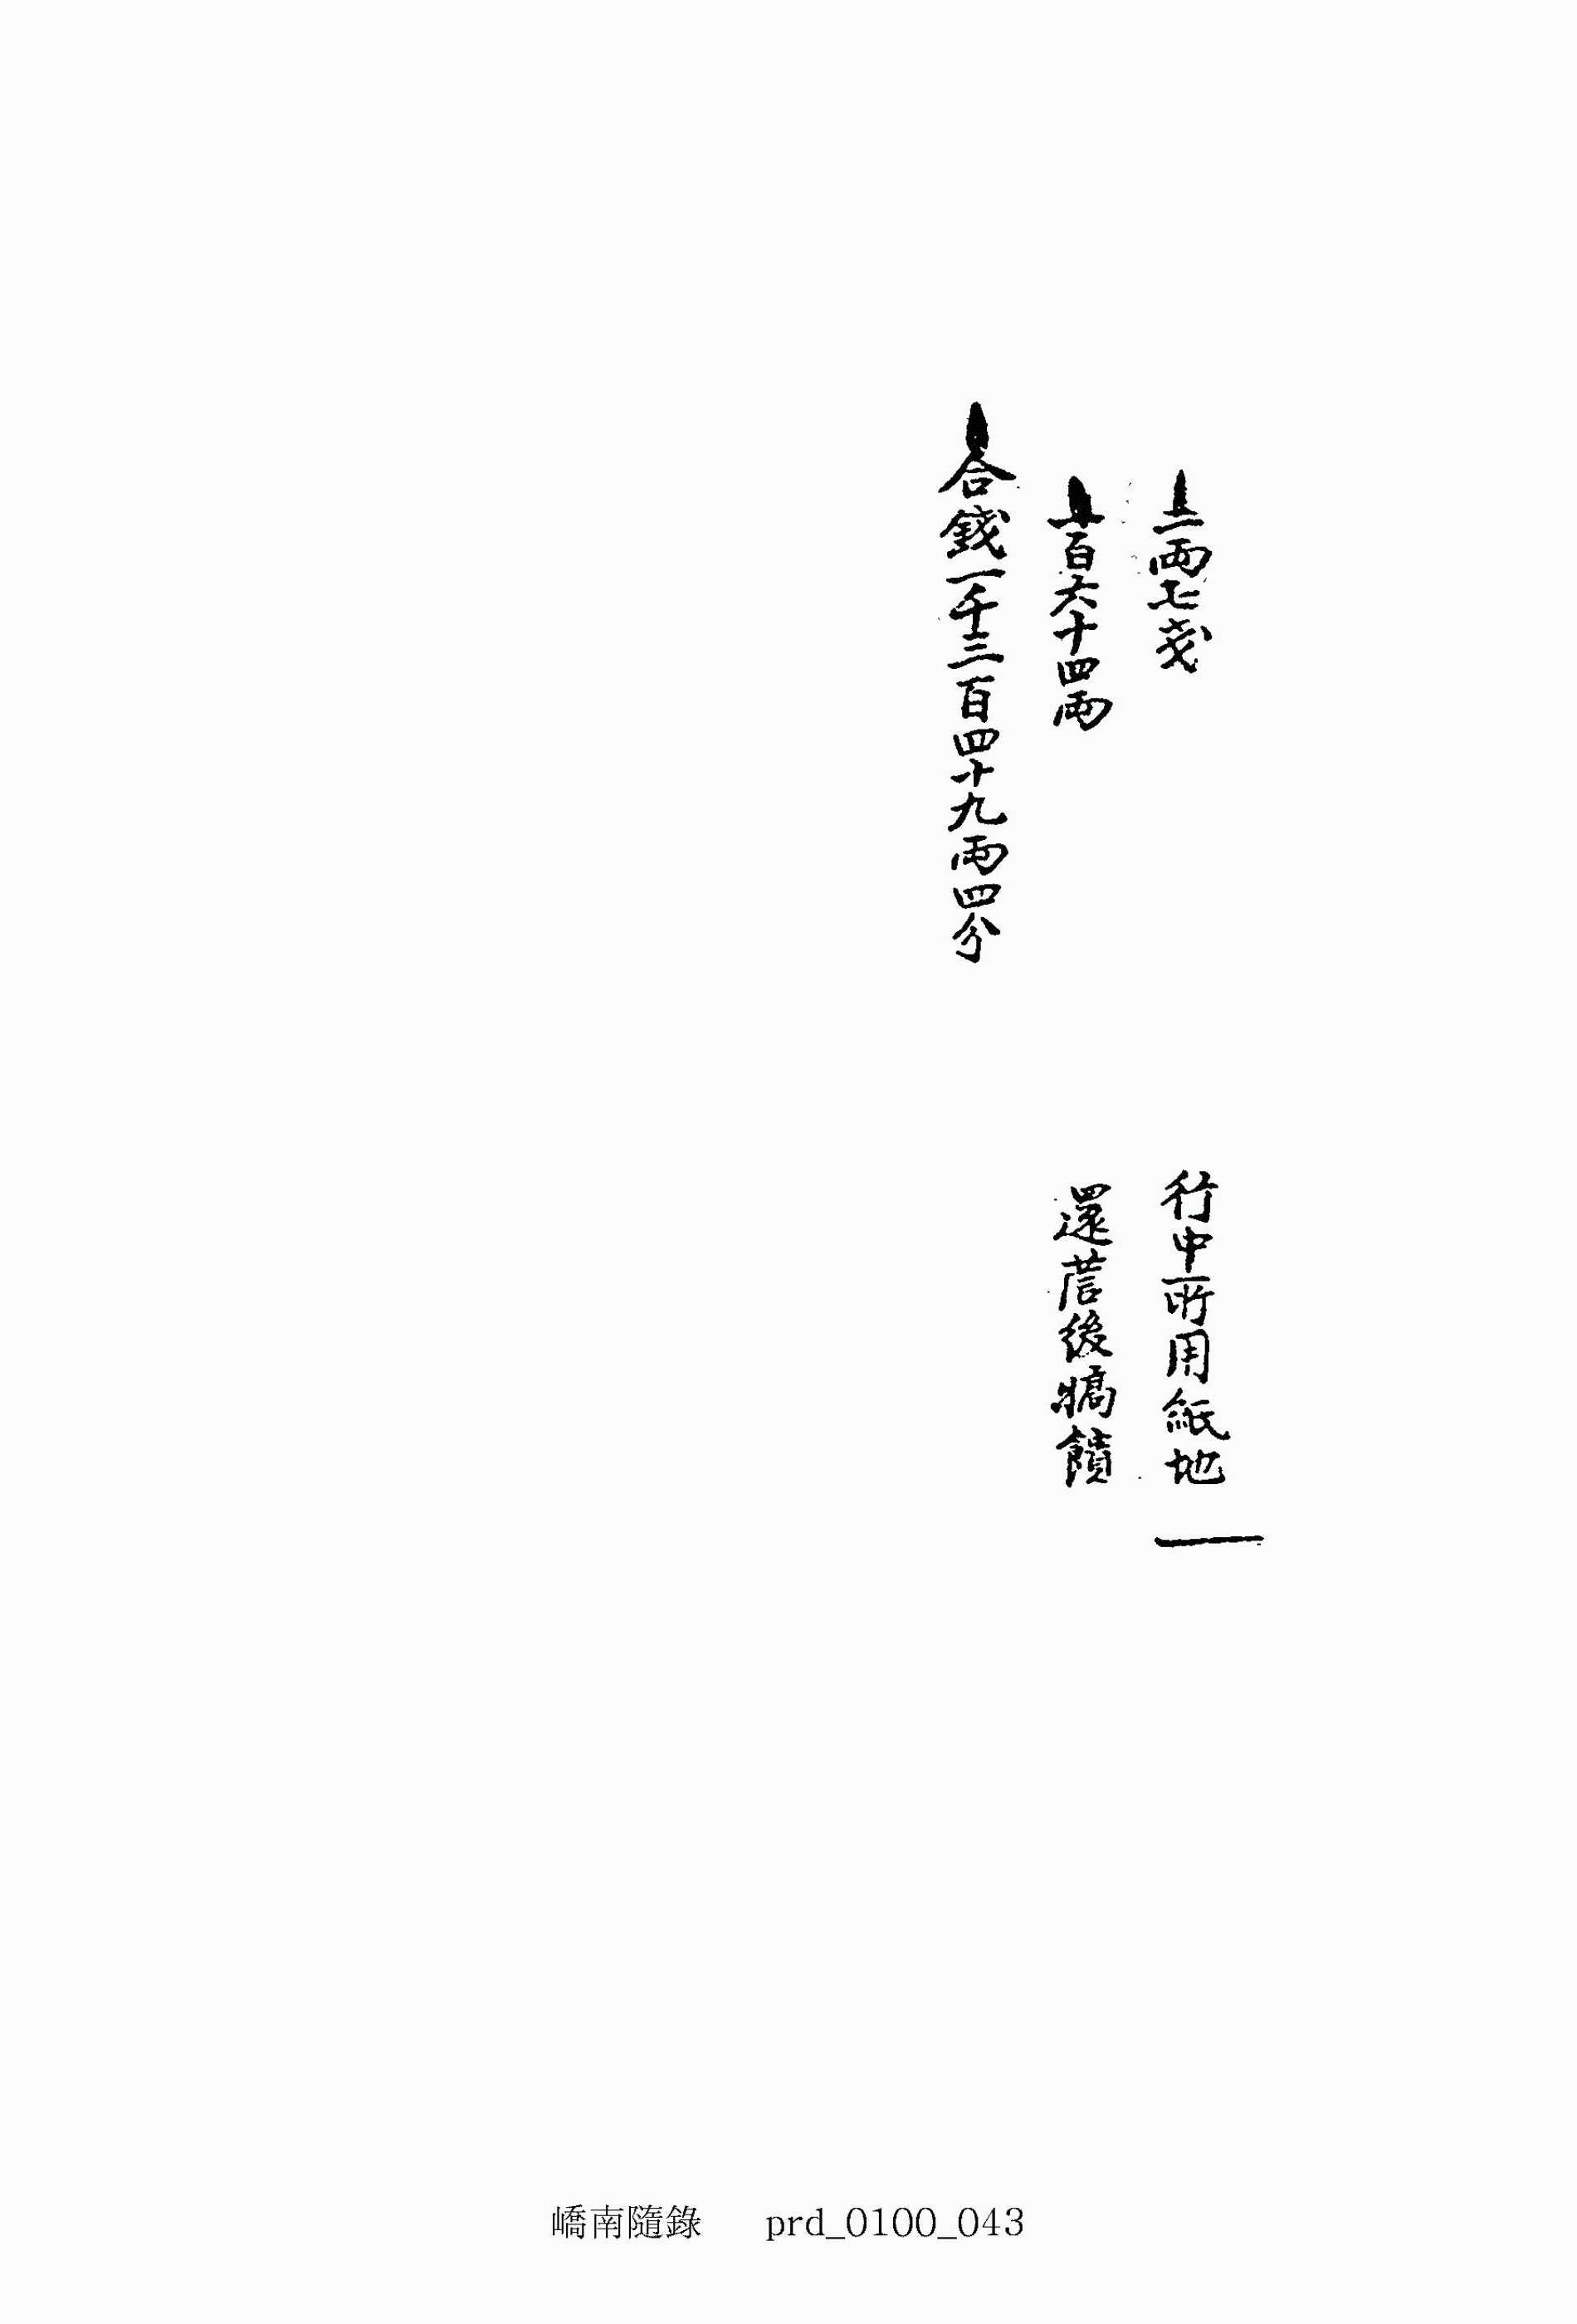 二兩七戔 行中所用紙地
一百六十四兩 還營後犒饋
合錢一千三百四十九兩四分
嶠南隨錄 prd_0100_043